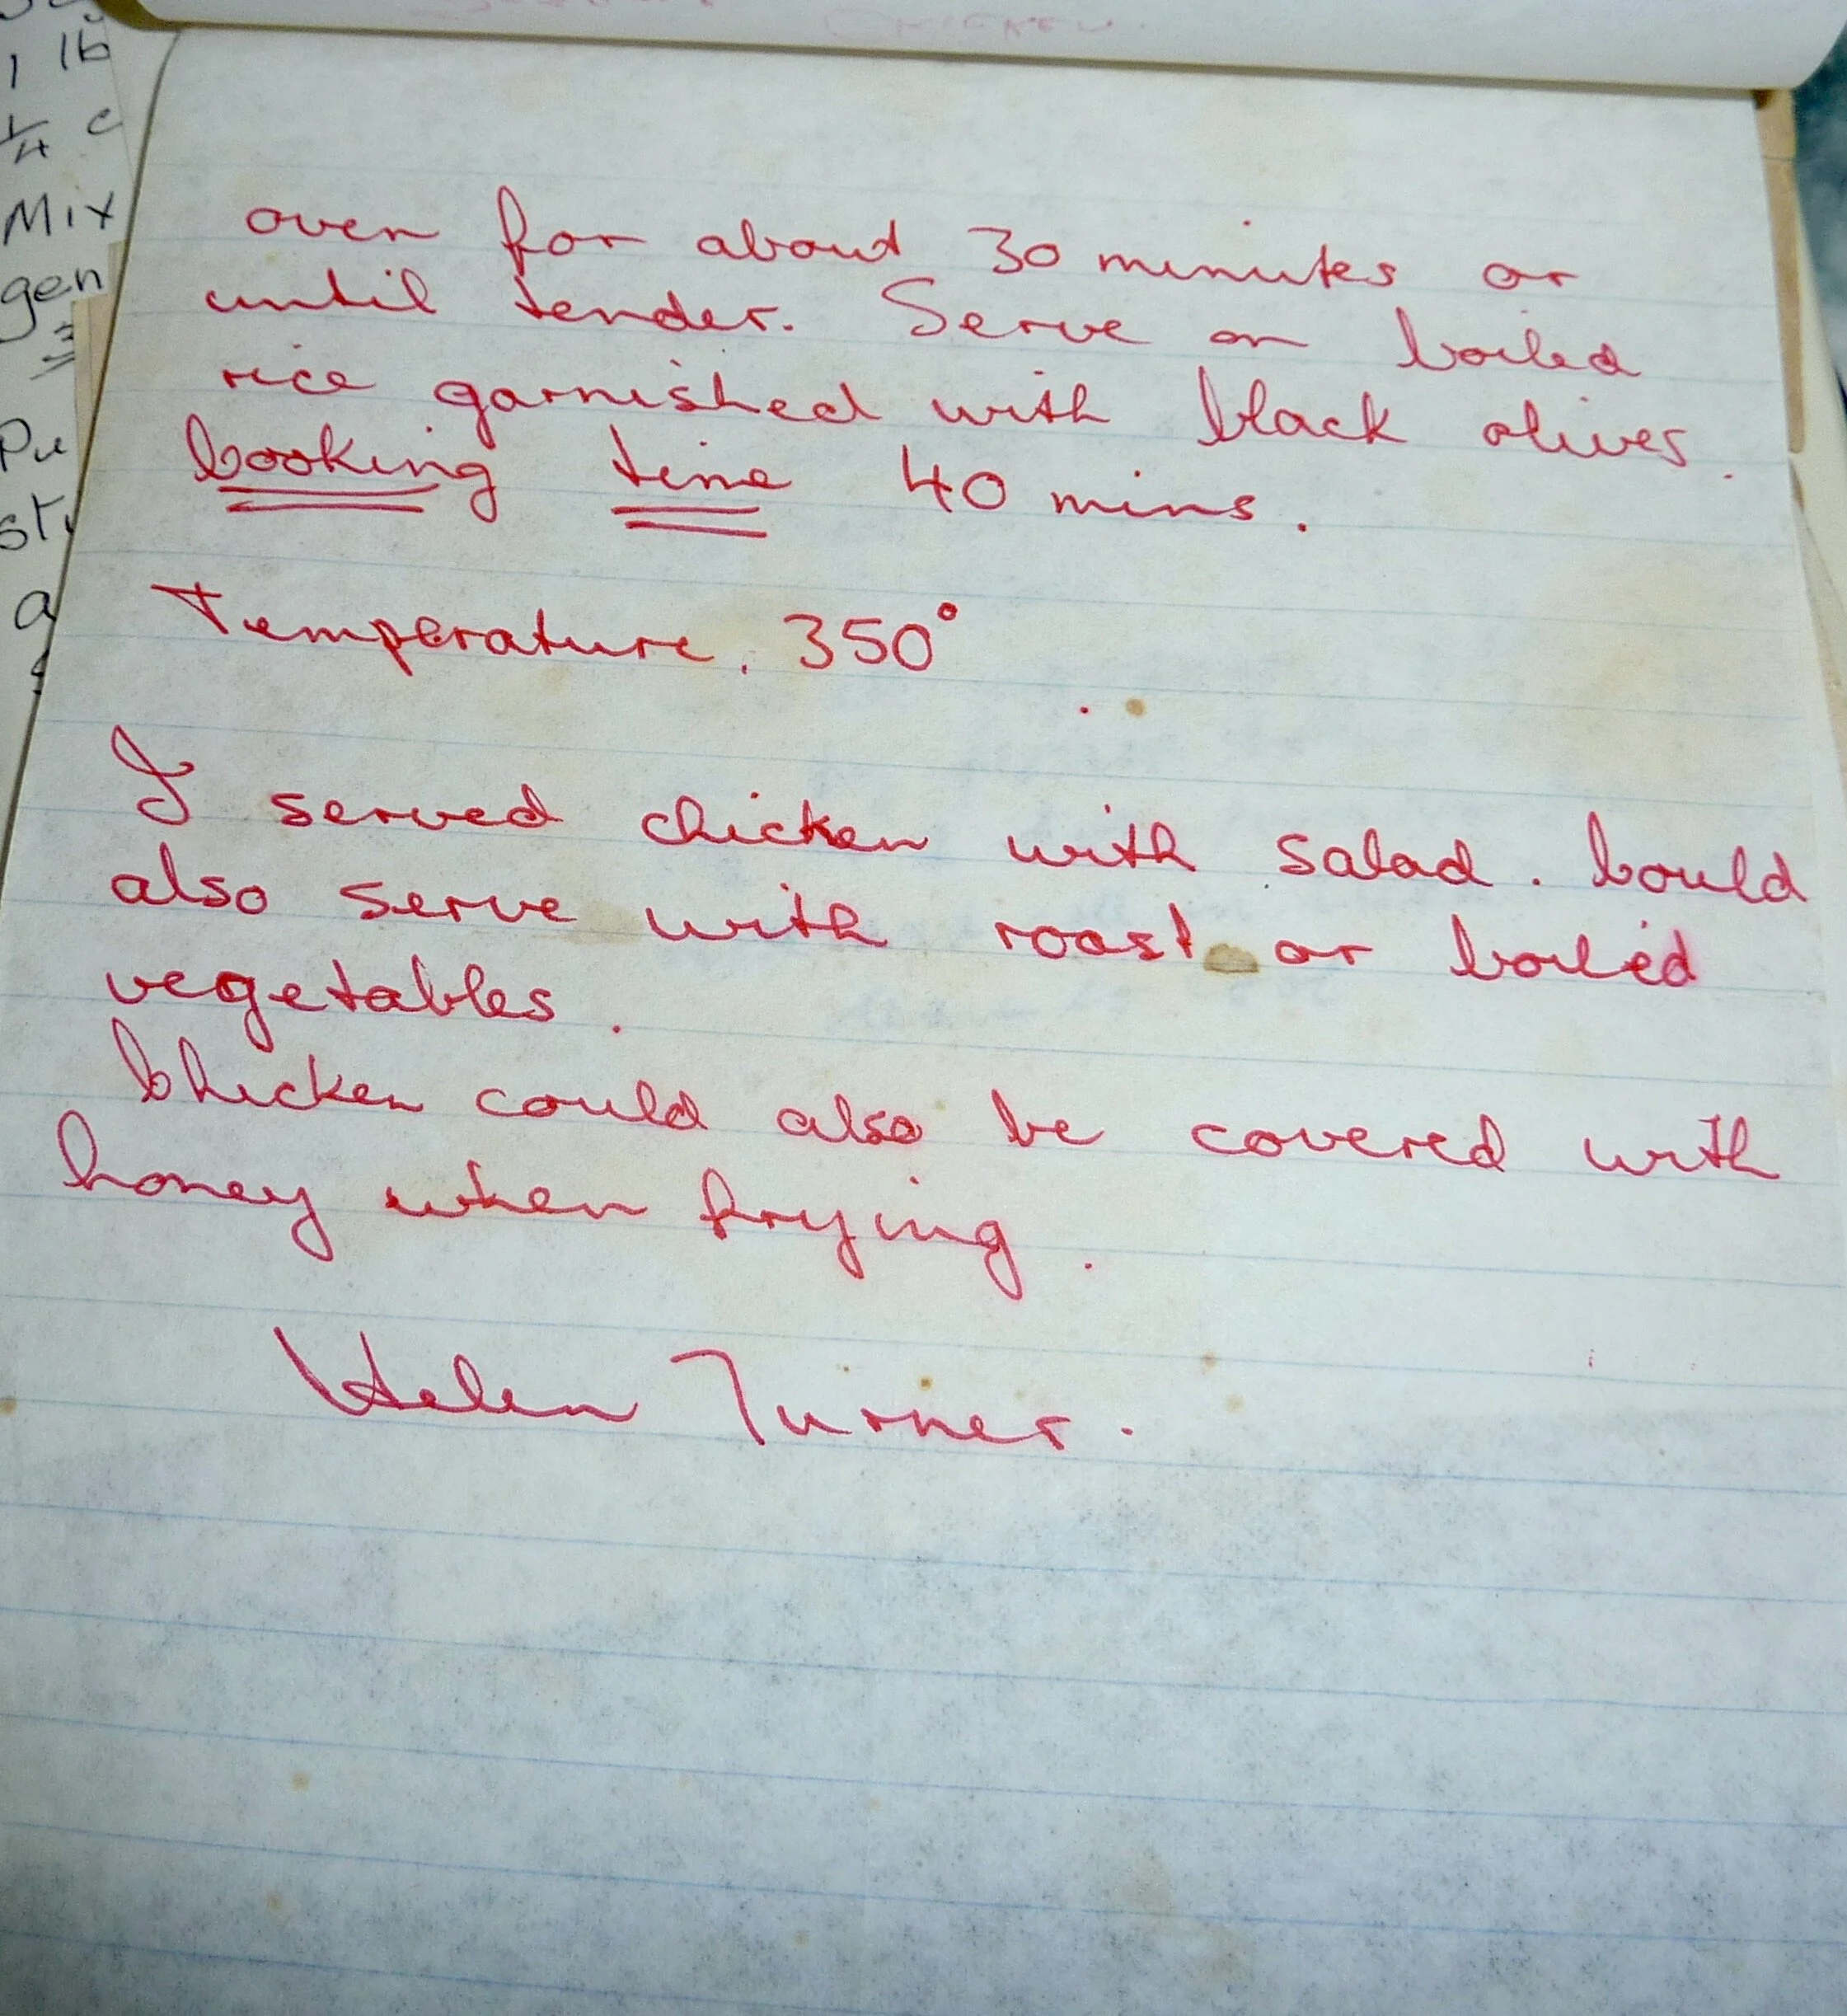 CHICKEN.
1 lb
1/4 c
Mix
gen
oven for about 30 minutes or
until tender. Serve on boiled
rice garnished with black olives.
Cooking time 40 mins.
Temperature. 350°
I served chicken with salad. Could
also serve with roast or boiled
vegetables.
Chicken could also be covered with
honey when frying.
Helen Turner.